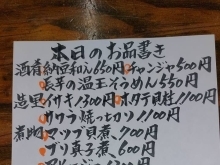 本日のお品書き
酒肴 納豆和え650円 チャンジャ500円
長芋の温玉そうめん550円
造里 イサキ1300円 ホタテ貝柱1100円
サワラ焼っ切り1100円
煮物 マツブ貝煮、700円
ブリ真子煮、600円